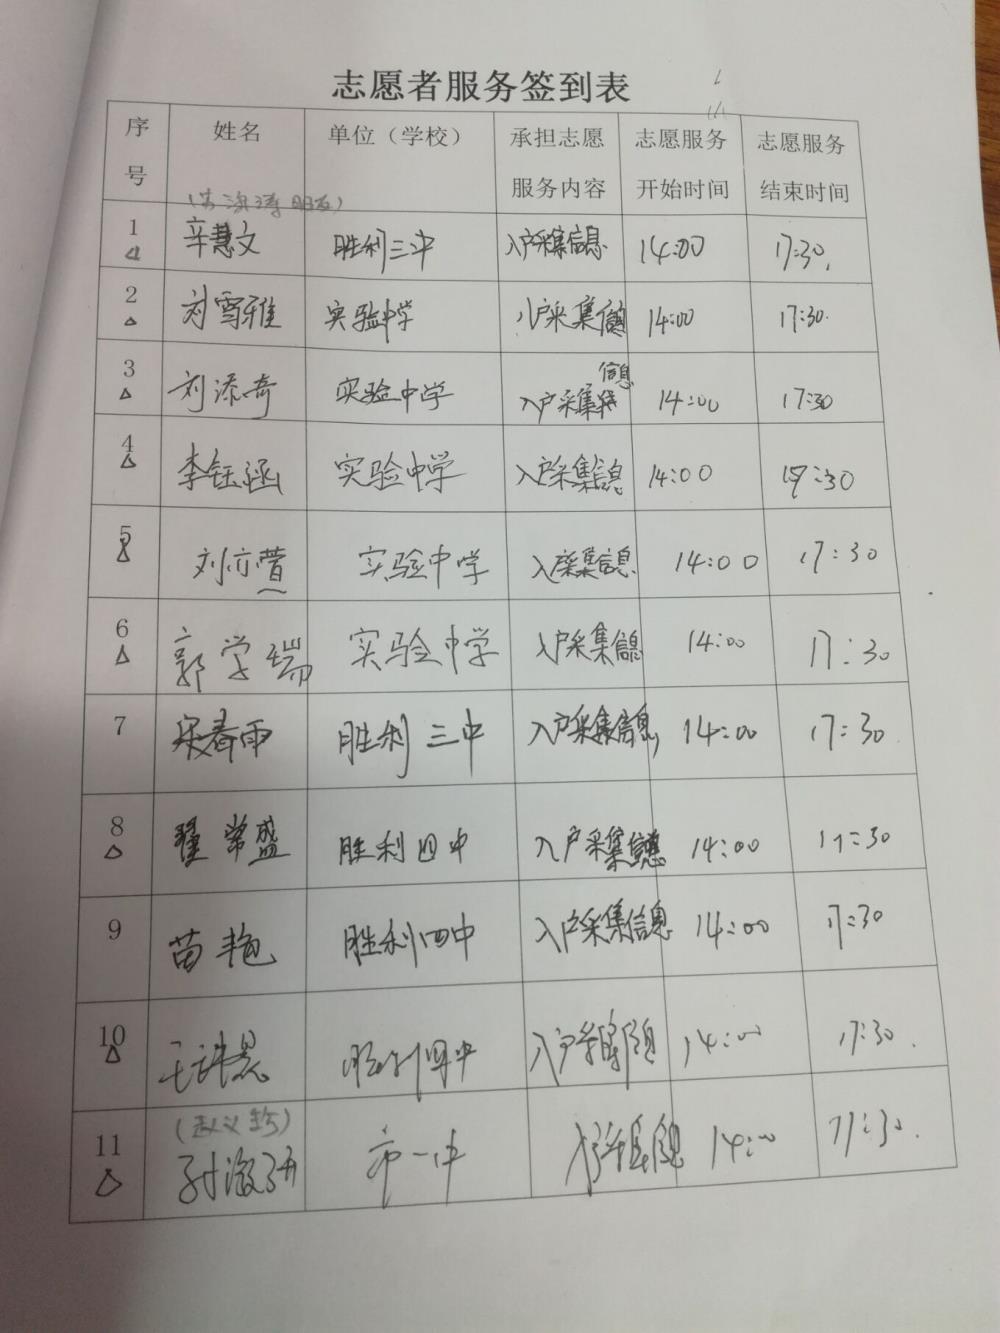 志愿者服务签到表
序号 姓名 单位（学校） 承担志愿服务内容 志愿服务开始时间 志愿服务结束时间
1 辛慧文 胜利三中 入户采集信息 14:00 17:30.
2 刘雪雅 实验中学 入户采集信息 14:00 17:30.
3 刘添奇 实验中学 入户采集信息 14:00 17:30
4 李钰涵 实验中学 入户采集信息 14:00 17:30
5 刘亦萱 实验中学 入户采集信息 14:00 17:30
6 郭学瑞 实验中学 入户采集信息 14:00 17:30
7 宋春雨 胜利三中 入户采集信息 14:00 17:30
8 翟常盛 胜利四中 入户采集信息 14:00 17:30
9 苗艳 胜利四中 入户采集信息 14:00 17:30
10 王 胜利四中 入户采集信息 14:00 17:30.
11 孙 市一中 入户采集信息 14:00 17:30.